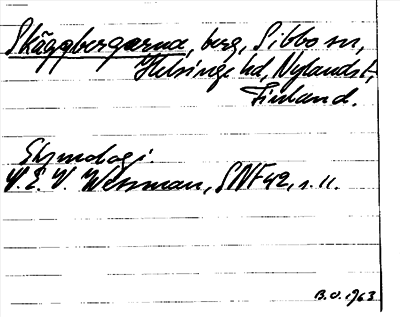 Skäggbergarna, berg, Sibbo sn,
Helsinge hd, Nylandsl.,
Finland.
Etymologi
V. E. V. Wessman, SNF 42, s. 11.
B.O. 1963